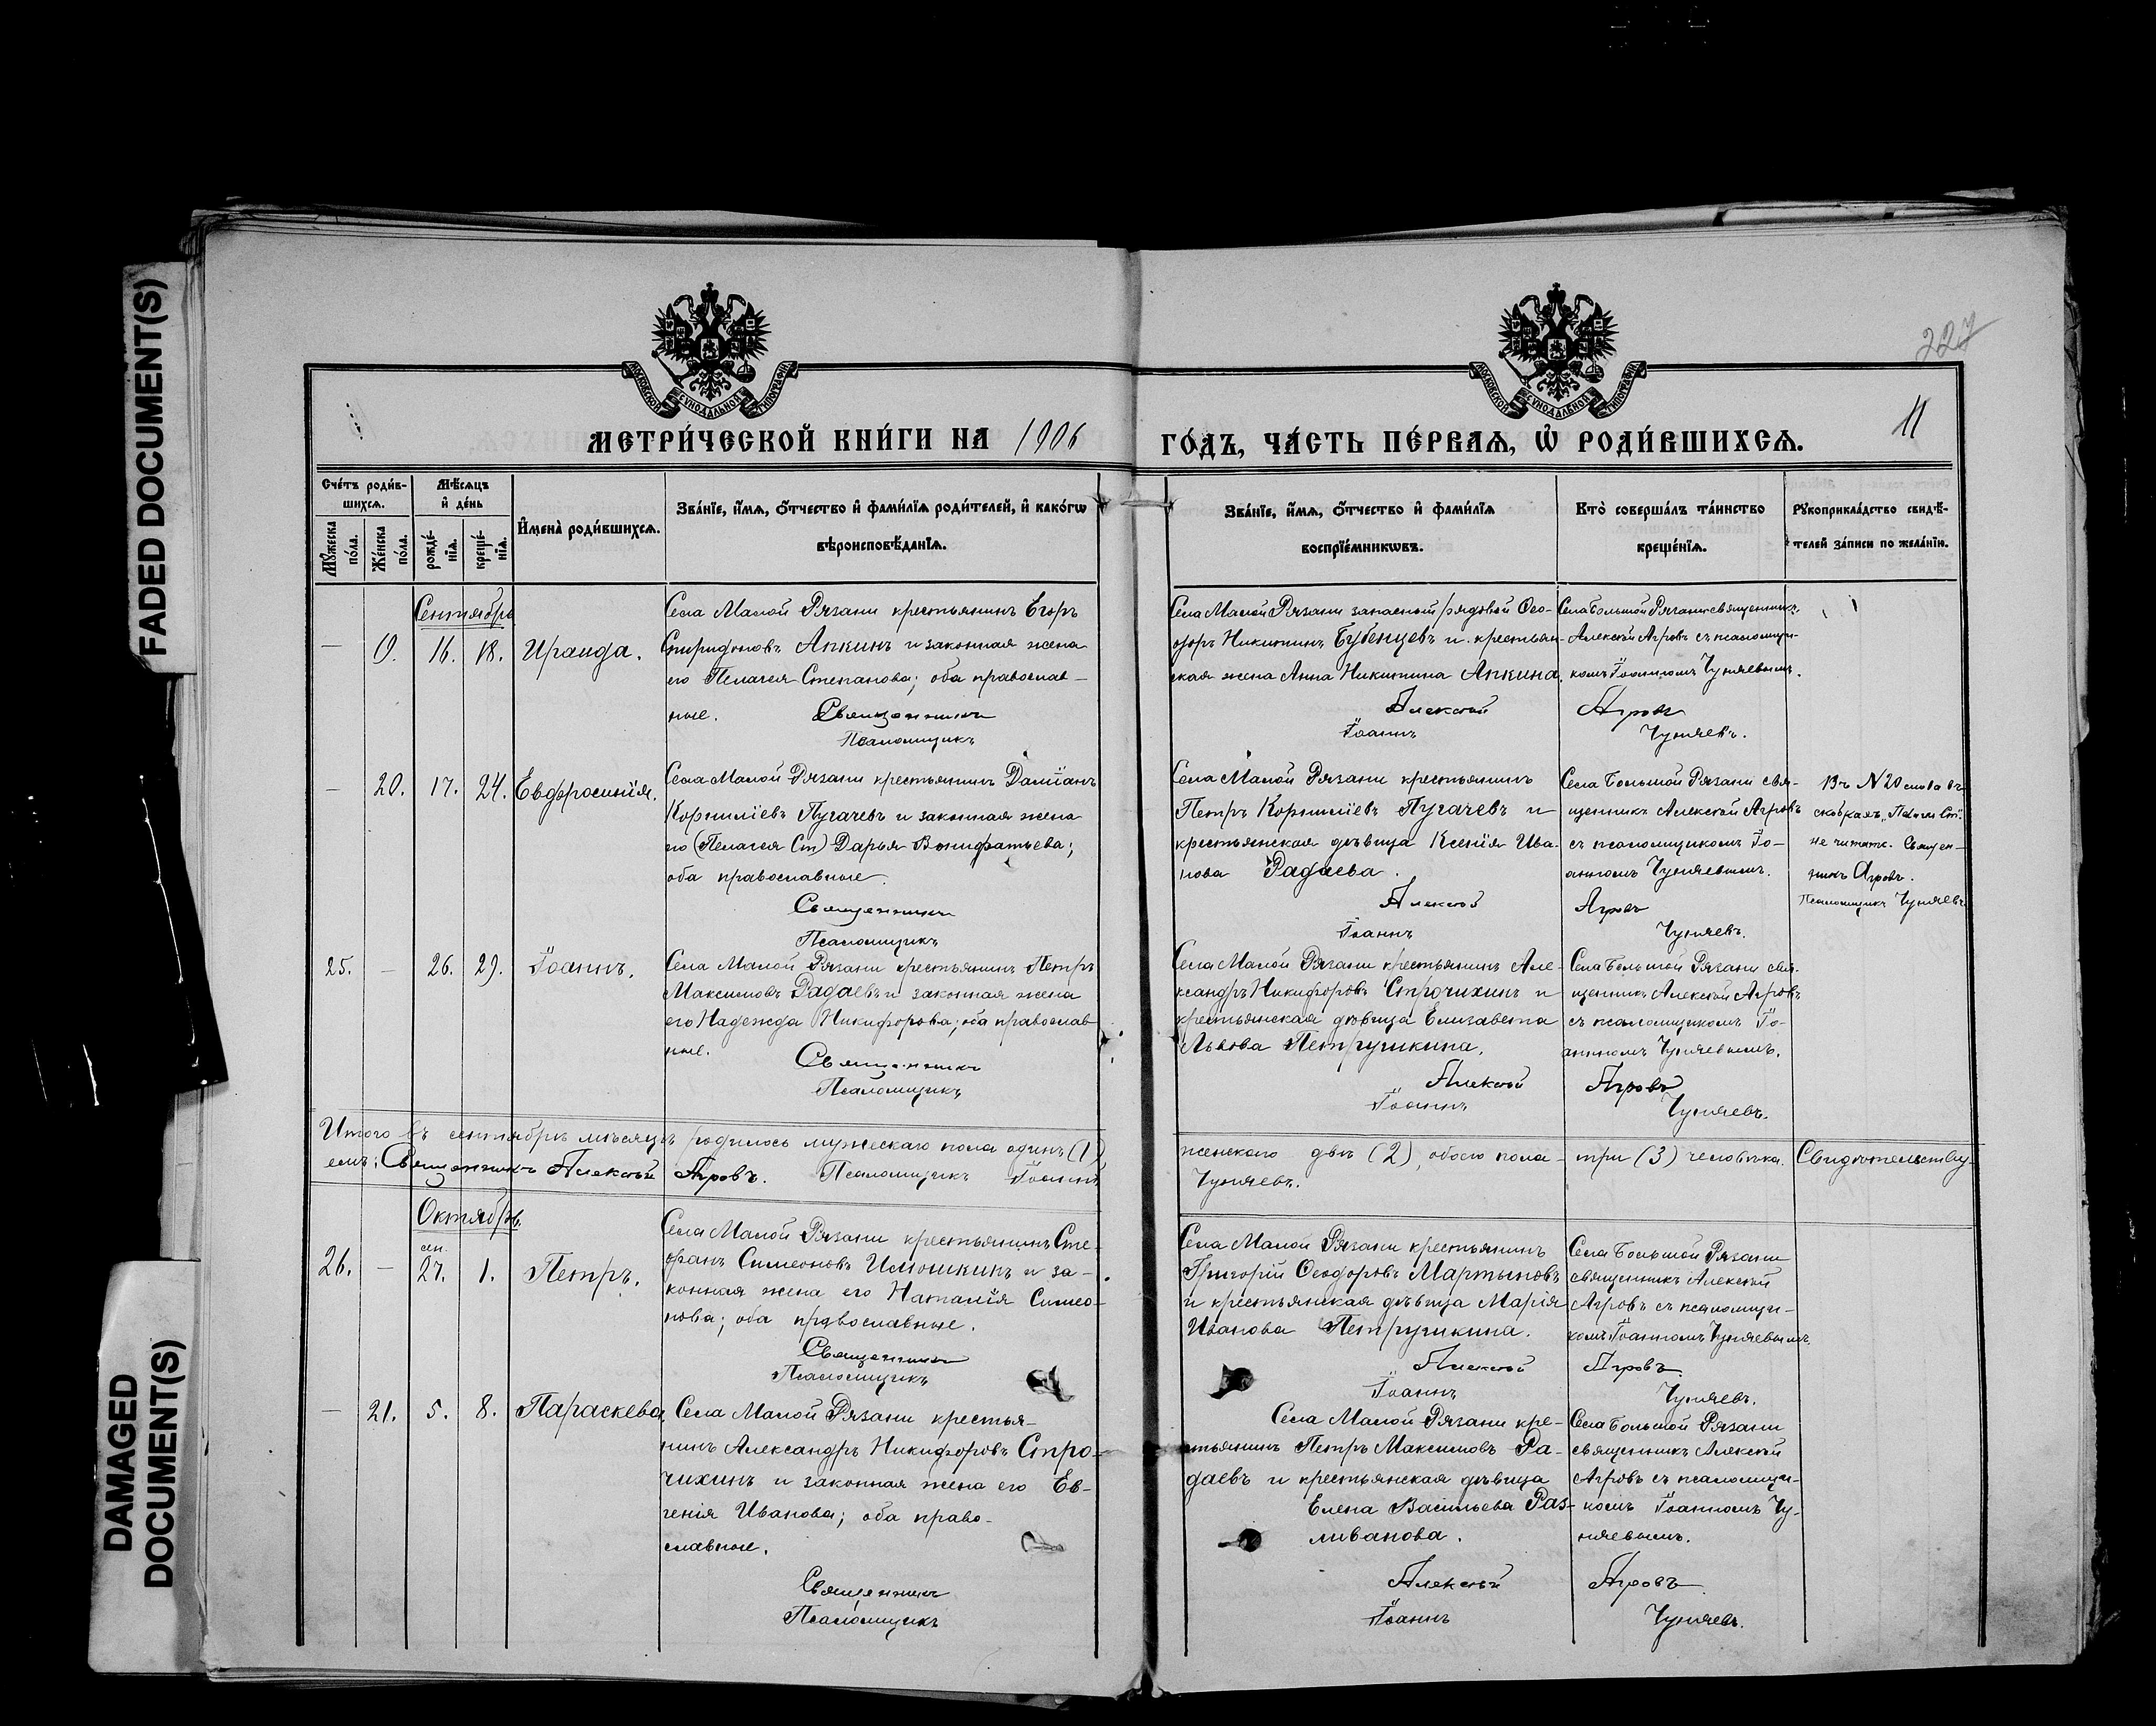 FADED DOCUMENT(S)
DAMAGED
DOCUMENT(S)
МОСКОВСКОЙ СѴНОДАЛЬНОЙ ТИПОГРАФІИ
МОСКОВСКОЙ СѴНОДАЛЬНОЙ ТИПОГРАФІИ
227
МЕТРИ́ЧЕСКОЙ КНИ́ГИ НА 1906 ГО́ДЪ, ЧА́СТЬ ПЕ́РВАѦ, Ѡ҆ РОДИ́ВШИХСѦ. 11
Сче́тъ роди́в-
шихсѧ.
Мꙋ́жеска
по́ла.
Же́нска
по́ла.
Мѣ́сѧцъ
и҆ де́нь
рожде́-
нїѧ.
креще́-
нїѧ.
И҆мена̀ роди́вшихсѧ.
Зва́нїе, и҆́мѧ, ѻ҆́тчество и҆ фами́лїѧ роди́телей, и҆ како́гѡ
вѣроисповѣ́данїѧ.
Зва́нїе, и҆́мѧ, ѻ҆́тчество и҆ фами́лїѧ
воспрїе́мникѡвъ.
Кто̀ соверша́лъ та́инство
креще́нїѧ.
Рꙋкоприкла́дство свидѣ́-
телей за́писи по жела́нїю.
Сентябрь
— 19. 16. 18. Ираида.
Села Малой Рязани крестьянинъ Егоръ
Спиридоновъ Апкинъ и законная жена
его Пелагея Степанова; оба православ-
ные. Священникъ
Псаломщикъ
Села Малой Рязани запасный рядовой Ѳео-
доръ Никитинъ Бубенцевъ и крестьян-
ская жена Анна Никитина Апкина.
Алексѣй
Іоаннъ
Села Большой Рязани священникъ
Алексѣй Агровъ съ псаломщи-
комъ Іоанномъ Чуняевымъ.
Агровъ
Чуняевъ.
— 20. 17. 24. Евфросинія.
Села Малой Рязани крестьянинъ Даміанъ
Корниліевъ Пугачевъ и законная жена
его (Пелагея Ст) Дарья Вонифатьева;
оба православные.
Священникъ
Псаломщикъ
Села Малой Рязани крестьянинъ
Петръ Корниліевъ Пугачевъ и
крестьянская дѣвица Ксенія Ива-
нова Радаева.
Алексѣй
Іоаннъ
Села Большой Рязани свя-
щенникъ Алексѣй Агровъ
съ псаломщикомъ Іо-
анномъ Чуняевымъ.
Агровъ
Чуняевъ.
Въ N 20 слова въ
скобкахъ „Пелагея Ст.
не читать. Священ-
никъ Агровъ.
Псаломщикъ Чуняевъ
25. — 26. 29. Іоаннъ.
Села Малой Рязани крестьянинъ Петръ
Максимовъ Радаевъ и законная жена
его Надежда Никифорова; оба православ-
ные. Священникъ
Псаломщикъ
Села Малой Рязани крестьянинъ Але-
ксандръ Никифоровъ Строчихинъ и
крестьянская дѣвица Елизавета
Львова Петрушкина.
Алексѣй
Іоаннъ
Села Большой Рязани свя-
щенникъ Алексѣй Агровъ
съ псаломщикомъ Іо-
анномъ Чуняевымъ.
Агровъ
Чуняевъ.
Итого въ сентябрѣ мѣсяцѣ родилось мужескаго пола одинъ (1) женскаго двѣ (2), обоего пола три (3) человѣка. Свидѣтельству-
емъ: Священникъ Алексѣй Агровъ. Псаломщикъ Іоаннъ Чуняевъ.
Октябрь.
26. — сен. 27. 1. Петръ.
Села Малой Рязани крестьянинъ Сте-
фанъ Симеоновъ Илюшкинъ и за-
конная жена его Наталія Симео-
нова; оба православные.
Священникъ
Псаломщикъ
Села Малой Рязани крестьянинъ
Григорій Ѳеодоровъ Мартыновъ
и крестьянская дѣвица Марія
Иванова Петрушкина.
Алексѣй
Іоаннъ
Села Большой Рязани
священникъ Алексѣй
Агровъ съ псаломщи-
комъ Іоанномъ Чуняевымъ.
Агровъ
Чуняевъ.
— 21. 5. 8. Параскева.
Села Малой Рязани крестья-
нинъ Александръ Никифоровъ Стро-
чихинъ и законная жена его Ев-
генія Иванова; оба право-
славные.
Священникъ
Псаломщикъ
Села Малой Рязани кре-
стьянинъ Петръ Максимовъ Ра-
даевъ и крестьянская дѣвица
Елена Васильева Раз-
ливанова.
Алексѣй
Іоаннъ
Села Большой Рязани
священникъ Алексѣй
Агровъ съ псаломщи-
комъ Іоанномъ Чу-
няевымъ.
Агровъ
Чуняевъ.